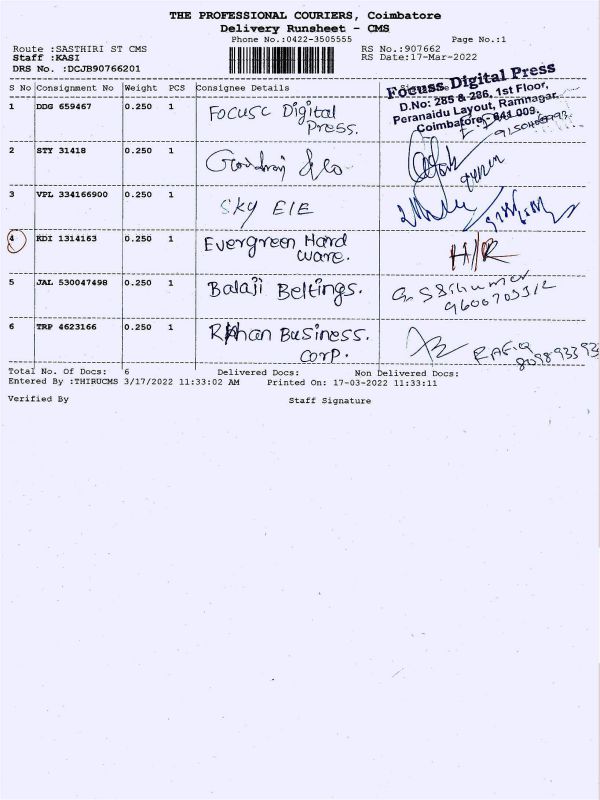 THE PROFESSIONAL COURIERS, Coimbatore
Delivery Runsheet - CMS
Phone No.:0422-3505555
Page No.:1
Route :SASTHIRI ST CMS
RS No.:907662
Staff :KASI
RS Date:17-Mar-2022
DRS No. :DCJB90766201
S No Consignment No Weight PCS Consignee Details
Focuss Digital Press
D.No: 285 & 286, 1st Floor,
Peranaidu Layout, Ramnagar,
Coimbatore - 641 009.
1 DDG 659467 0.250 1 Focusc Digital
Press.
2 STY 31418 0.250 1
3 VPL 334166900 0.250 1 Sky EIE
4 KDI 1314163 0.250 1 Evergreen Hard
ware.
H/R
5 JAL 530047498 0.250 1 Balaji Beltings.
6 TRP 4623166 0.250 1 Rihan Business.
Corp.
RAFIQ
Total No. Of Docs: 6 Delivered Docs: Non Delivered Docs:
Entered By :THIRUCMS 3/17/2022 11:33:02 AM Printed On: 17-03-2022 11:33:11
Verified By Staff Signature